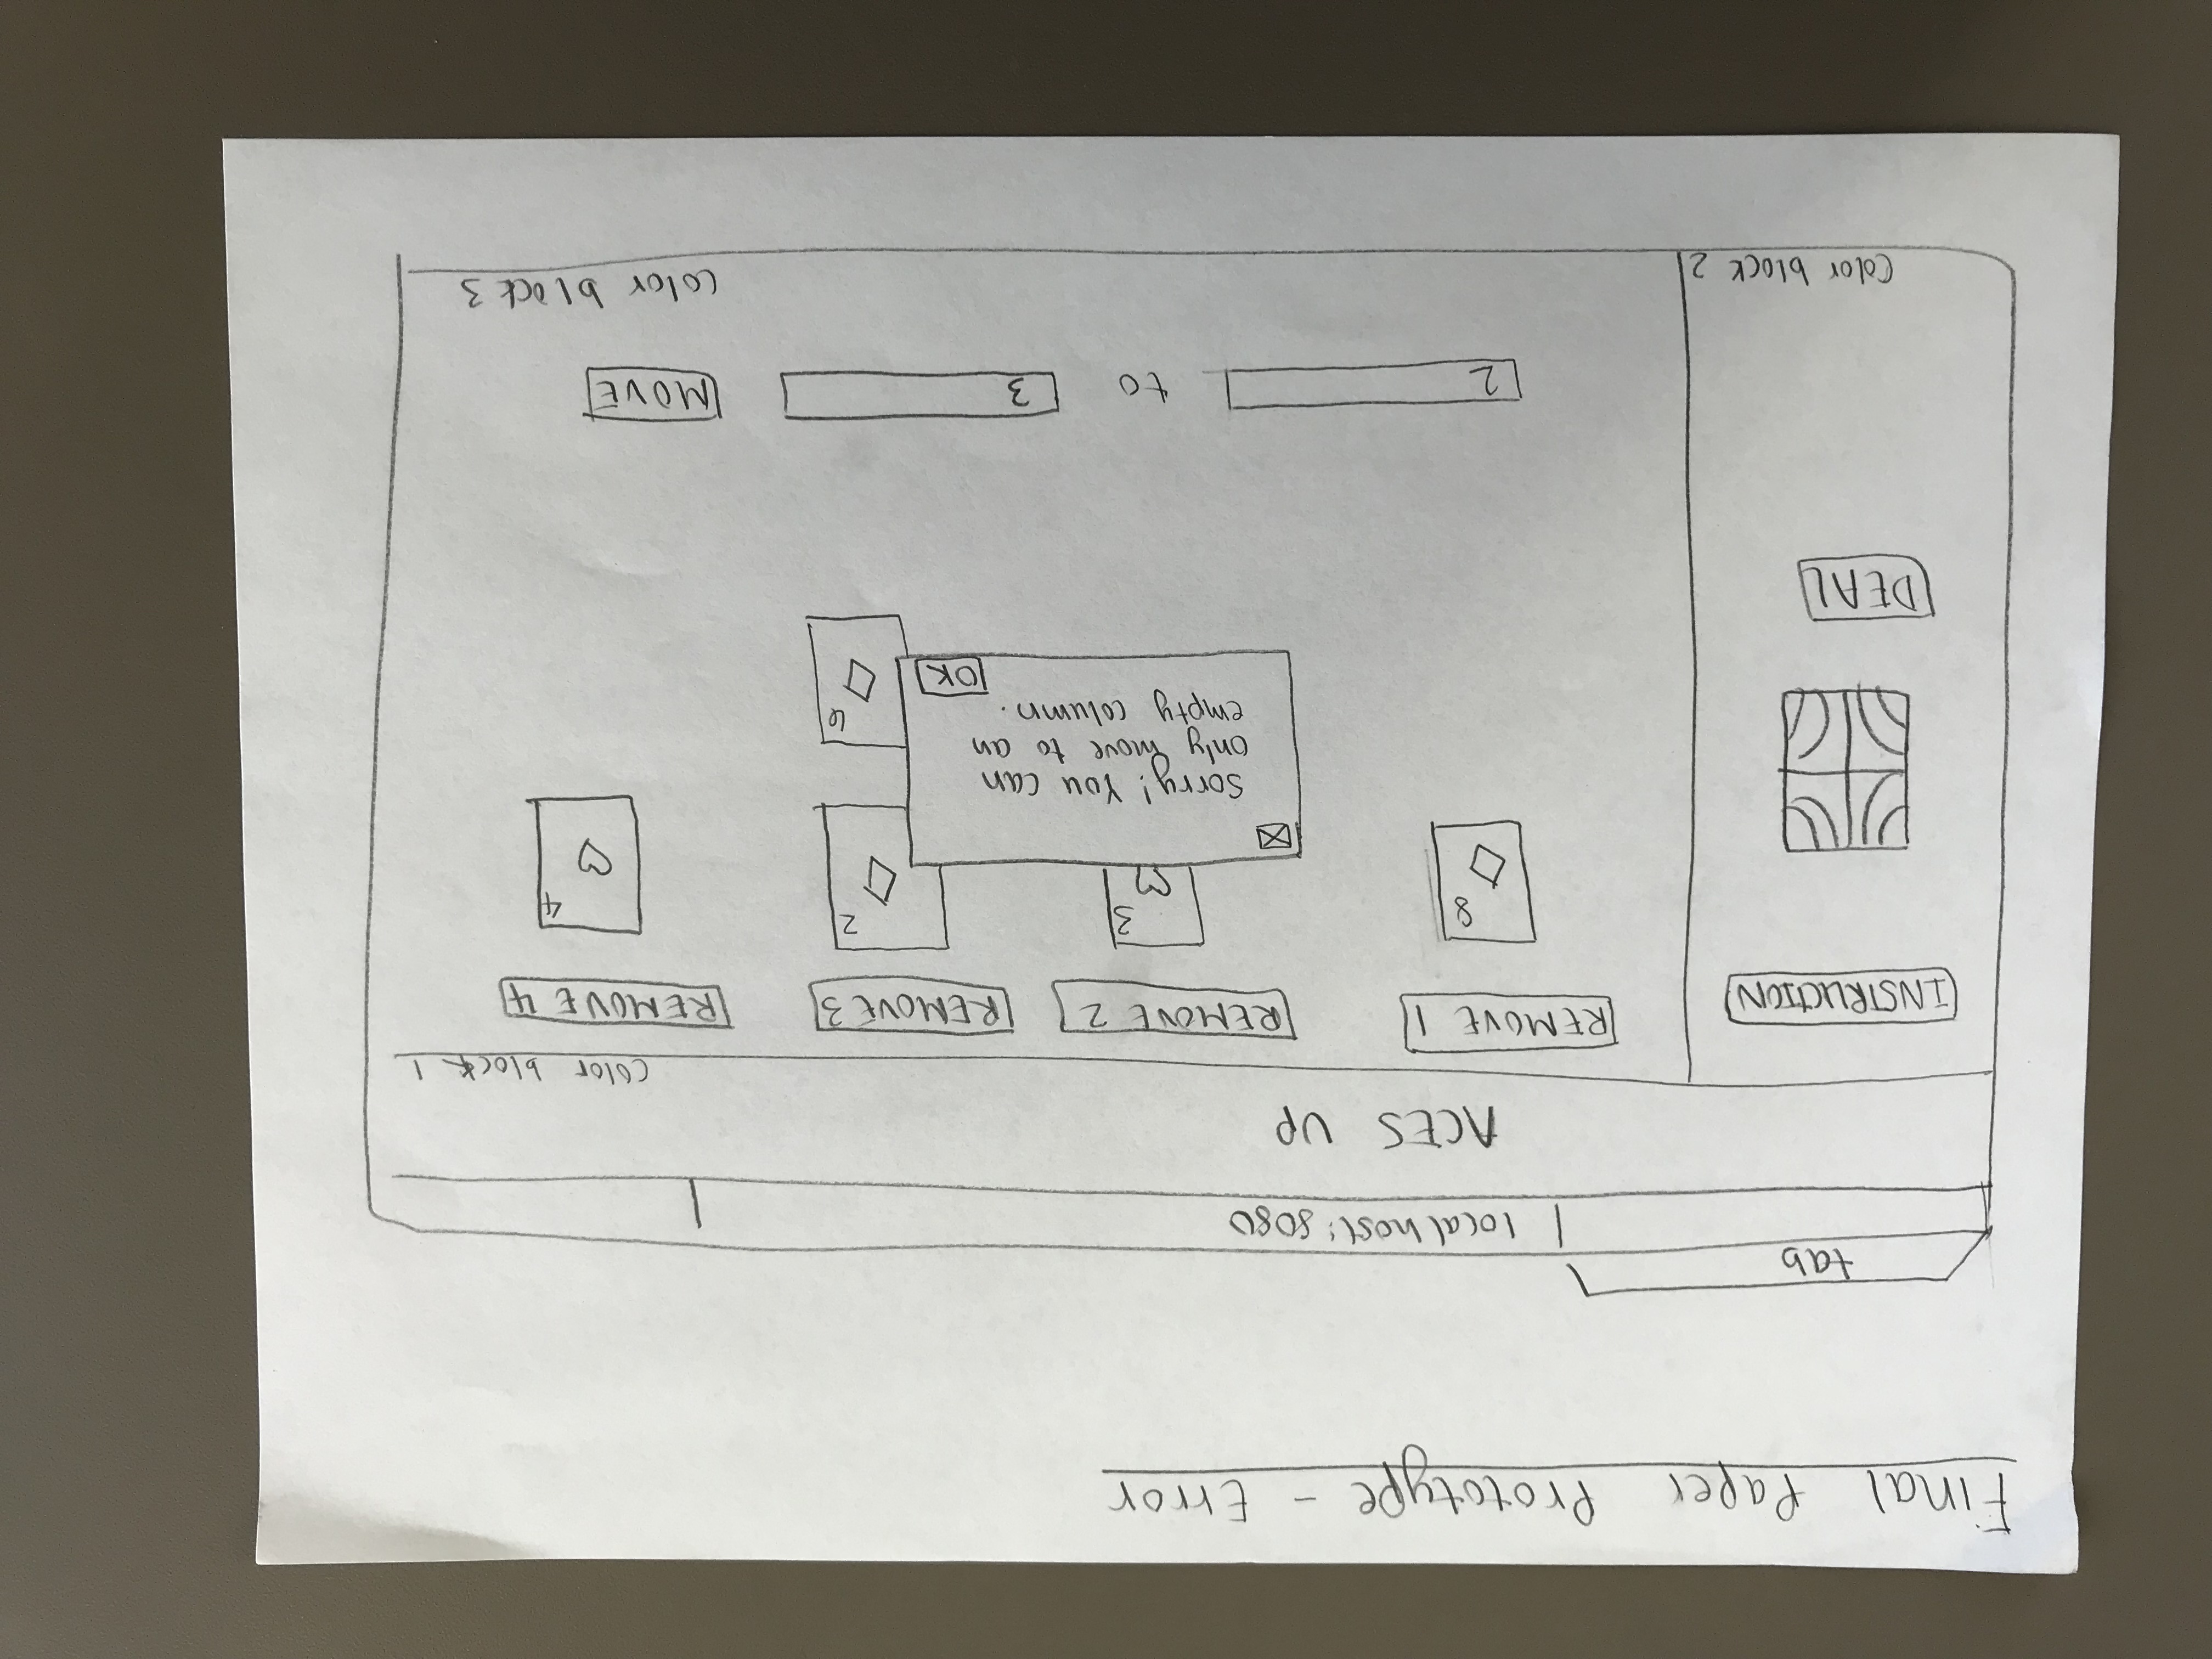 Final Paper Prototype - Error
tab
localhost: 8080
ACES UP
color block 1
INSTRUCTION
REMOVE 1
REMOVE 2
REMOVE 3
REMOVE 4
8
3
2
4
Sorry! You can
only move to an
empty column.
OK
6
DEAL
2 to 3 MOVE
color block 2
color block 3